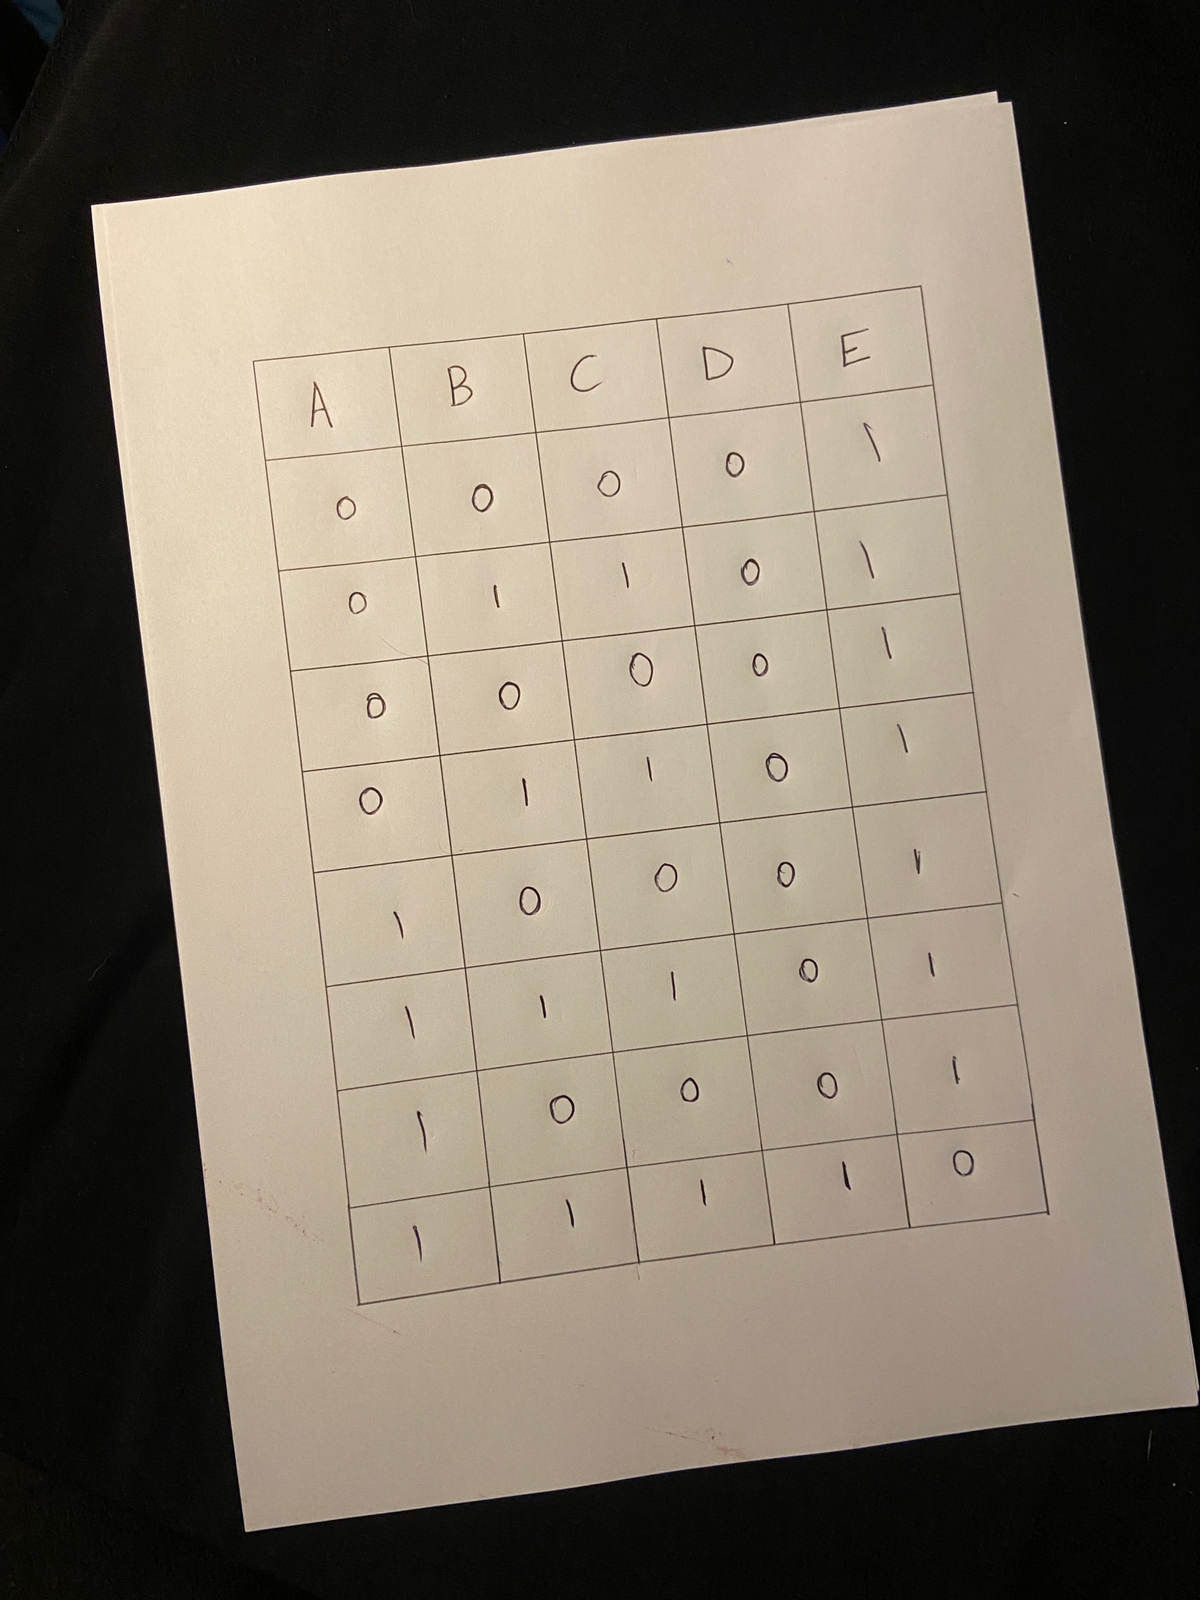 A B C D E
0 0 0 0 1
0 1 1 0 1
0 0 0 0 1
0 1 1 0 1
1 0 0 0 1
1 1 1 0 1
1 0 0 0 1
1 1 1 1 0